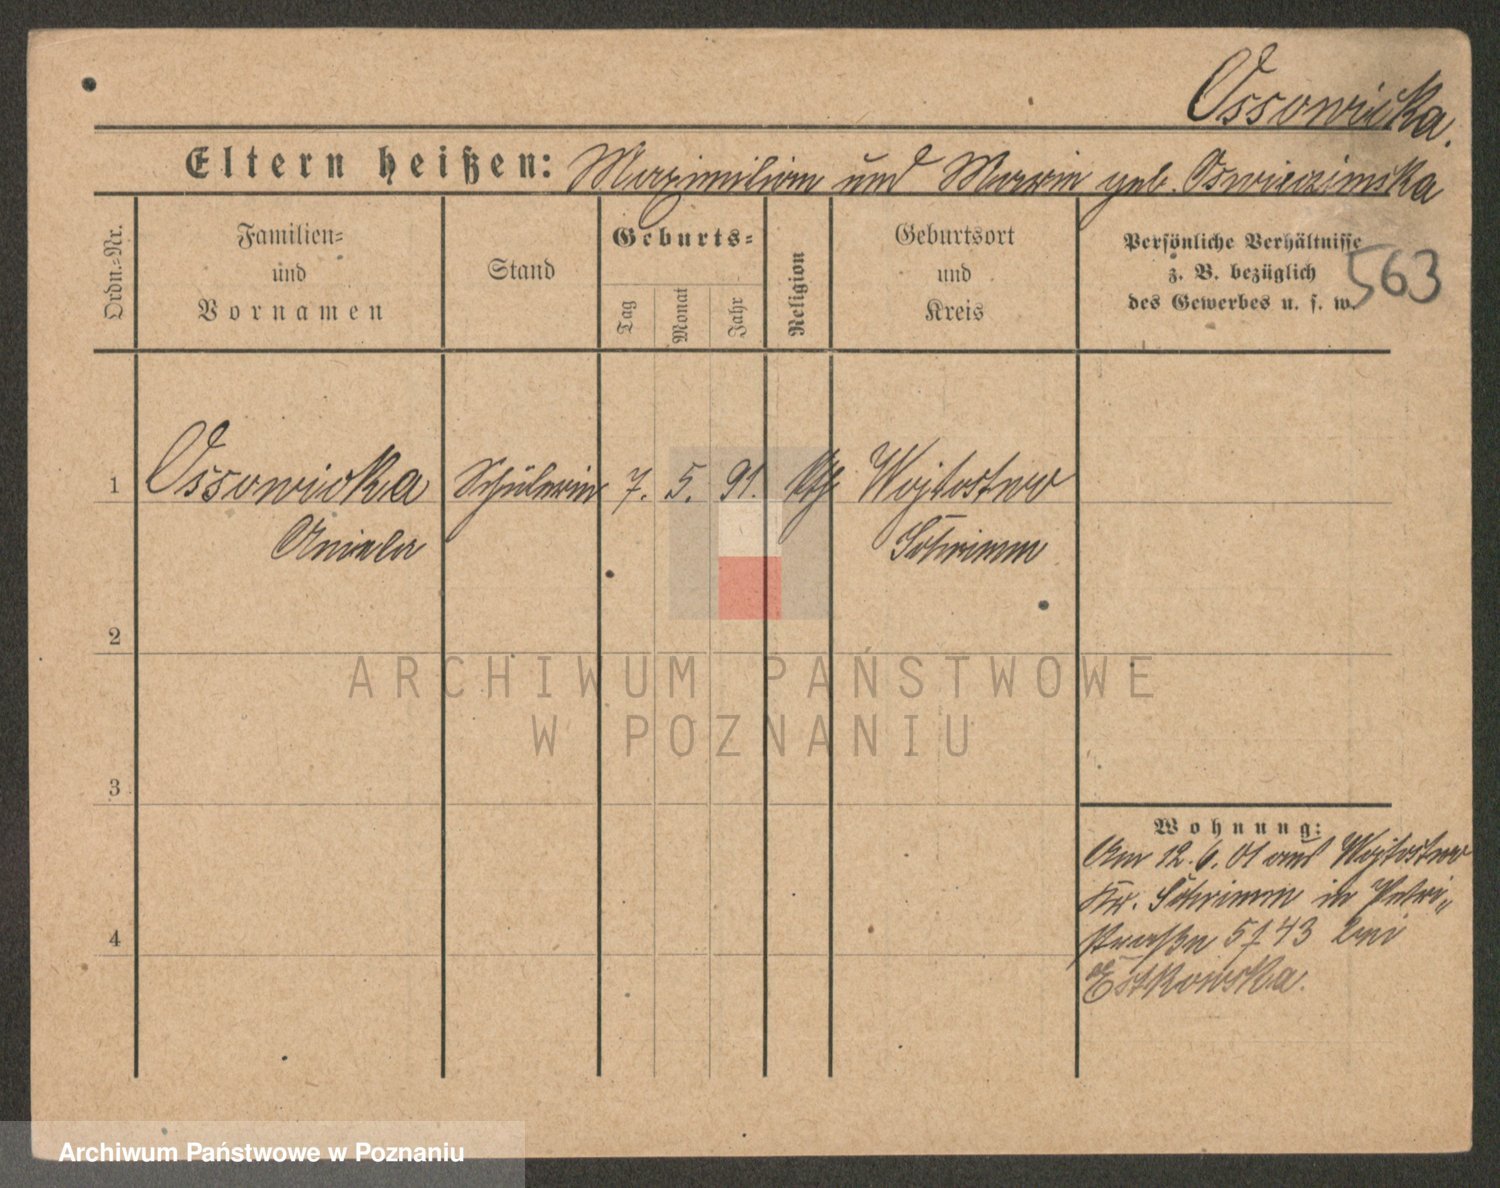 Ossowicka.
Eltern heißen: Maximilian und Maria geb. Oswiecimska
Ordn.-Nr.
Familien-
und
Vornamen
Stand
Geburts-
Tag
Monat
Jahr
Religion
Geburtsort
und
Kreis
Persönliche Verhältnisse
z. B. bezüglich
des Gewerbes u. s. w.
563
1 Ossowicka Schülerin 7. 5. 91. kth Wojtostwo
Aniela Schrimm
2
ARCHIWUM PAŃSTWOWE
W POZNANIU
3
Wohnung:
Am 12. 6. 01 aus Wojtostwo
Kr. Schrimm in Petri-
4
straße 5 43 bei
Estkowska.
Archiwum Państwowe w Poznaniu